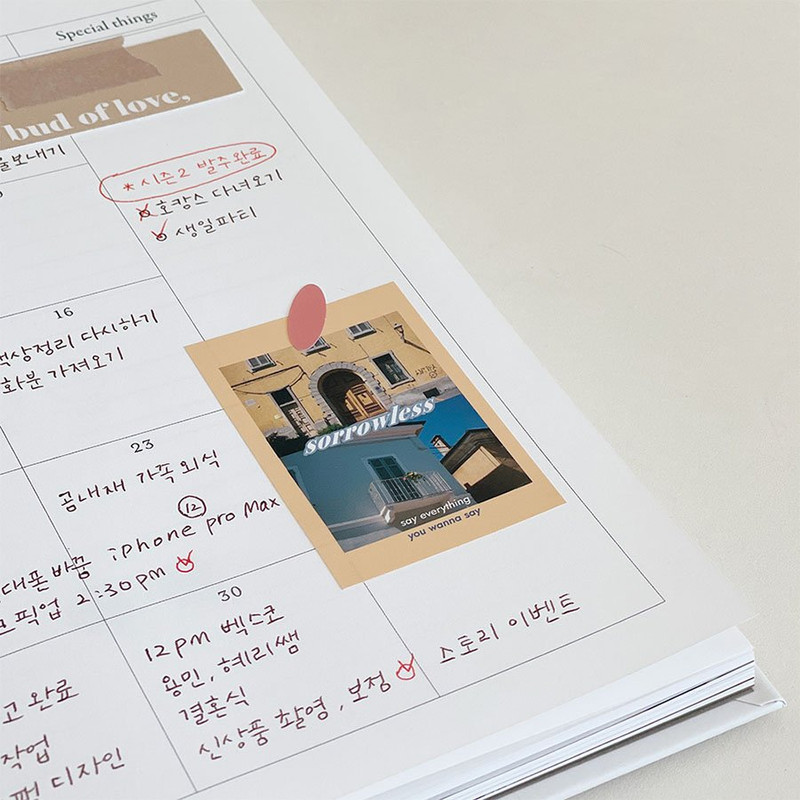 Special things
bud of love,
보내기
* 시즌2 발주완료
호캉스 다녀오기
생일파티
16
색상정리 다시하기
화분 가져오기
sorrowless
say everything
you wanna say
23
곰내재 가족 외식
12
iPhone pro Max
대폰 바꿈
픽업 2:30pm
30
12pm 벡스코
용민, 혜리쌤
결혼식
신상품 촬영, 보정
스토리 이벤트
고 완료
작업
펀 디자인